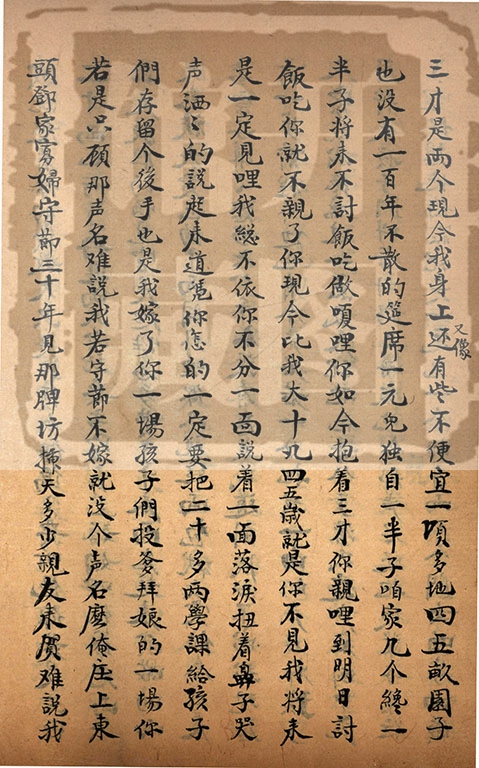 三才是两个現今我身上还有些不便宜一項多地四五畝園子
又像
也没有一百年不散的筵席一元児独自一半子咱家几个終一
半子将来不討飯吃做嗄哩你如今抱着三才你親哩到明日討
飯吃你就不親了你現今比我大十九四五歲就是你不見我将来
是一定見哩我総不依你不分一面説着一面落淚扭着鼻子哭
声洒〻的說起来道你怎的一定要把二十多两學課給孩子
們存留个後手也是我嫁了你一場孩子們投爹拜娘的一場你
若是只顧那声名难說我若守節不嫁就没个声名麽俺庄上東
頭鄧家寡婦守節三十年見那牌坊掀天多少親友来賀难說我